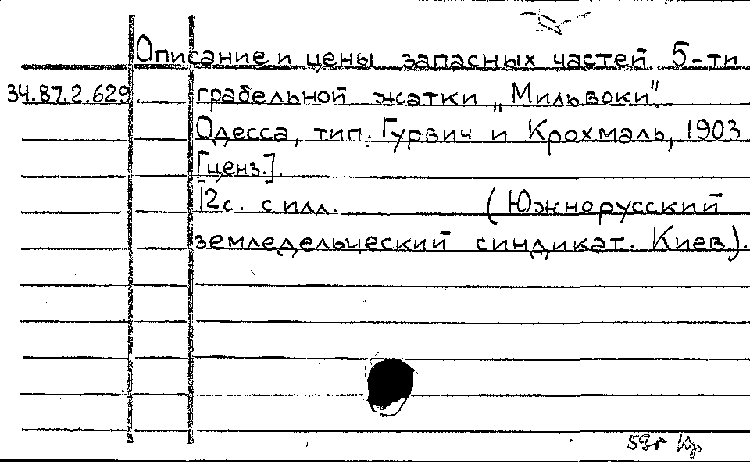 Описание и цены запасных частей 5-ти
34.87.2.629 грабельной жатки „Мильвоки“.
Одесса, тип. Гурвич и Крохмаль, 1903
[ценз.].
12с. с илл. (Южнорусский
земледельческий синдикат. Киев).